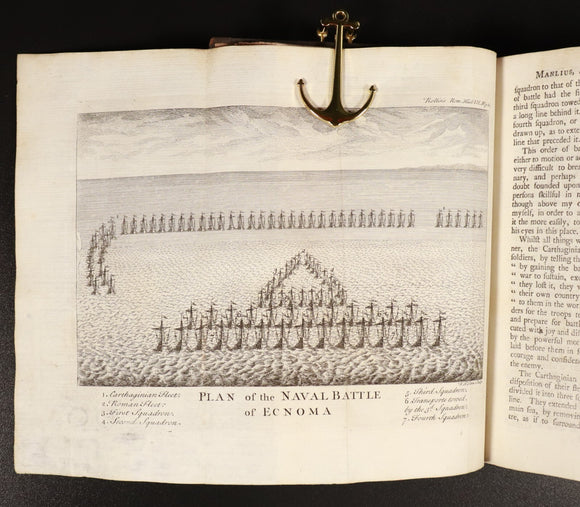 Rollins Rom. Hist.
PLAN of the NAVAL BATTLE
of ECNOMA
1. Carthaginian Fleet.
2. Roman Fleet.
3. First Squadron.
4. Second Squadron.
5. Third Squadron.
6. Transports towed
by the 3d. Squadron.
7. Fourth Squadron.
MANLIUS,
squadron to that of th
of battle had the fi
third squadron towe
a long line behind it.
fourth squadron, or
drawn up, as to exte
line that preceded it.
This order of ba
either to motion or a
very difficult to brea
nary, and perhaps
doubt founded upon
persons skilful in n
though above my
myself, in order to a
it the more easily, to
his eyes in this place.
Whilst all things w
ner, the Carthaginian
soldiers, by telling the
" by gaining the ba
" war to sustain, exc
" they lost it, they w
" their own country
" to them in the wor
ders for the troops
and prepare for batt
cuted with joy and di
by the powerful mo
laid before them in
courage and confiden
the enemy.
The Carthaginian
disposition of their fle
divided it into three
line. They extended
main sea, by removin
tre, as if to surroun